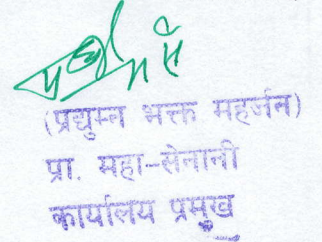 (प्रद्युम्न भक्त महर्जन)
प्रा. महा-सेनानी
कार्यालय प्रमुख